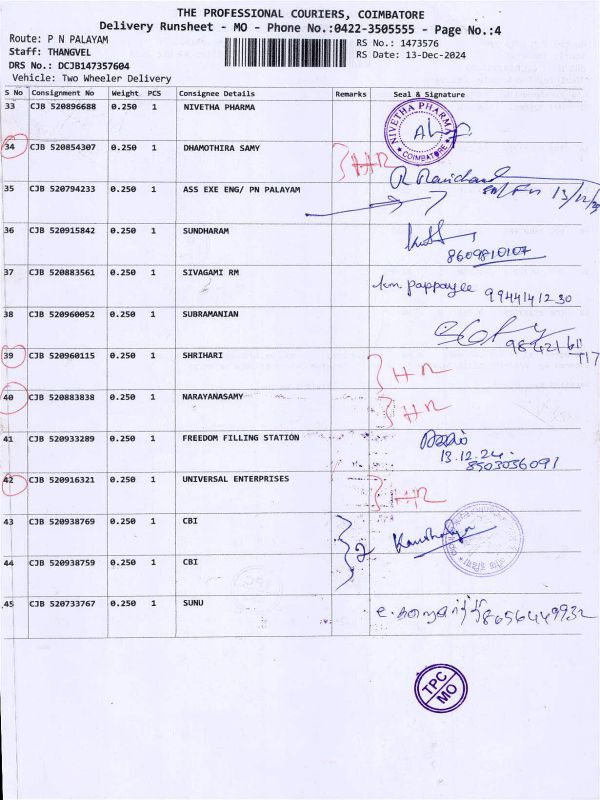 THE PROFESSIONAL COURIERS, COIMBATORE
Delivery Runsheet - MO - Phone No.:0422-3505555 - Page No.:4
Route: P N PALAYAM
RS No.: 1473576
Staff: THANGVEL
RS Date: 13-Dec-2024
DRS No.: DCJB147357604
Vehicle: Two Wheeler Delivery
S No Consignment No Weight PCS Consignee Details Remarks Seal & Signature
33 CJB 520896688 0.250 1 NIVETHA PHARMA NIVETHA PHARMA COIMBATORE
34 CJB 520854307 0.250 1 DHAMOTHIRA SAMY HR
35 CJB 520794233 0.250 1 ASS EXE ENG/ PN PALAYAM
36 CJB 520915842 0.250 1 SUNDHARAM
8609810107
37 CJB 520883561 0.250 1 SIVAGAMI RM
38 CJB 520960052 0.250 1 SUBRAMANIAN
39 CJB 520960115 0.250 1 SHRIHARI HR
40 CJB 520883838 0.250 1 NARAYANASAMY HR
41 CJB 520933289 0.250 1 FREEDOM FILLING STATION
13.12.24.
8503036091
42 CJB 520916321 0.250 1 UNIVERSAL ENTERPRISES HR
43 CJB 520938769 0.250 1 CBI
2
44 CJB 520938759 0.250 1 CBI
45 CJB 520733767 0.250 1 SUNU 8656449932
TPC
MO